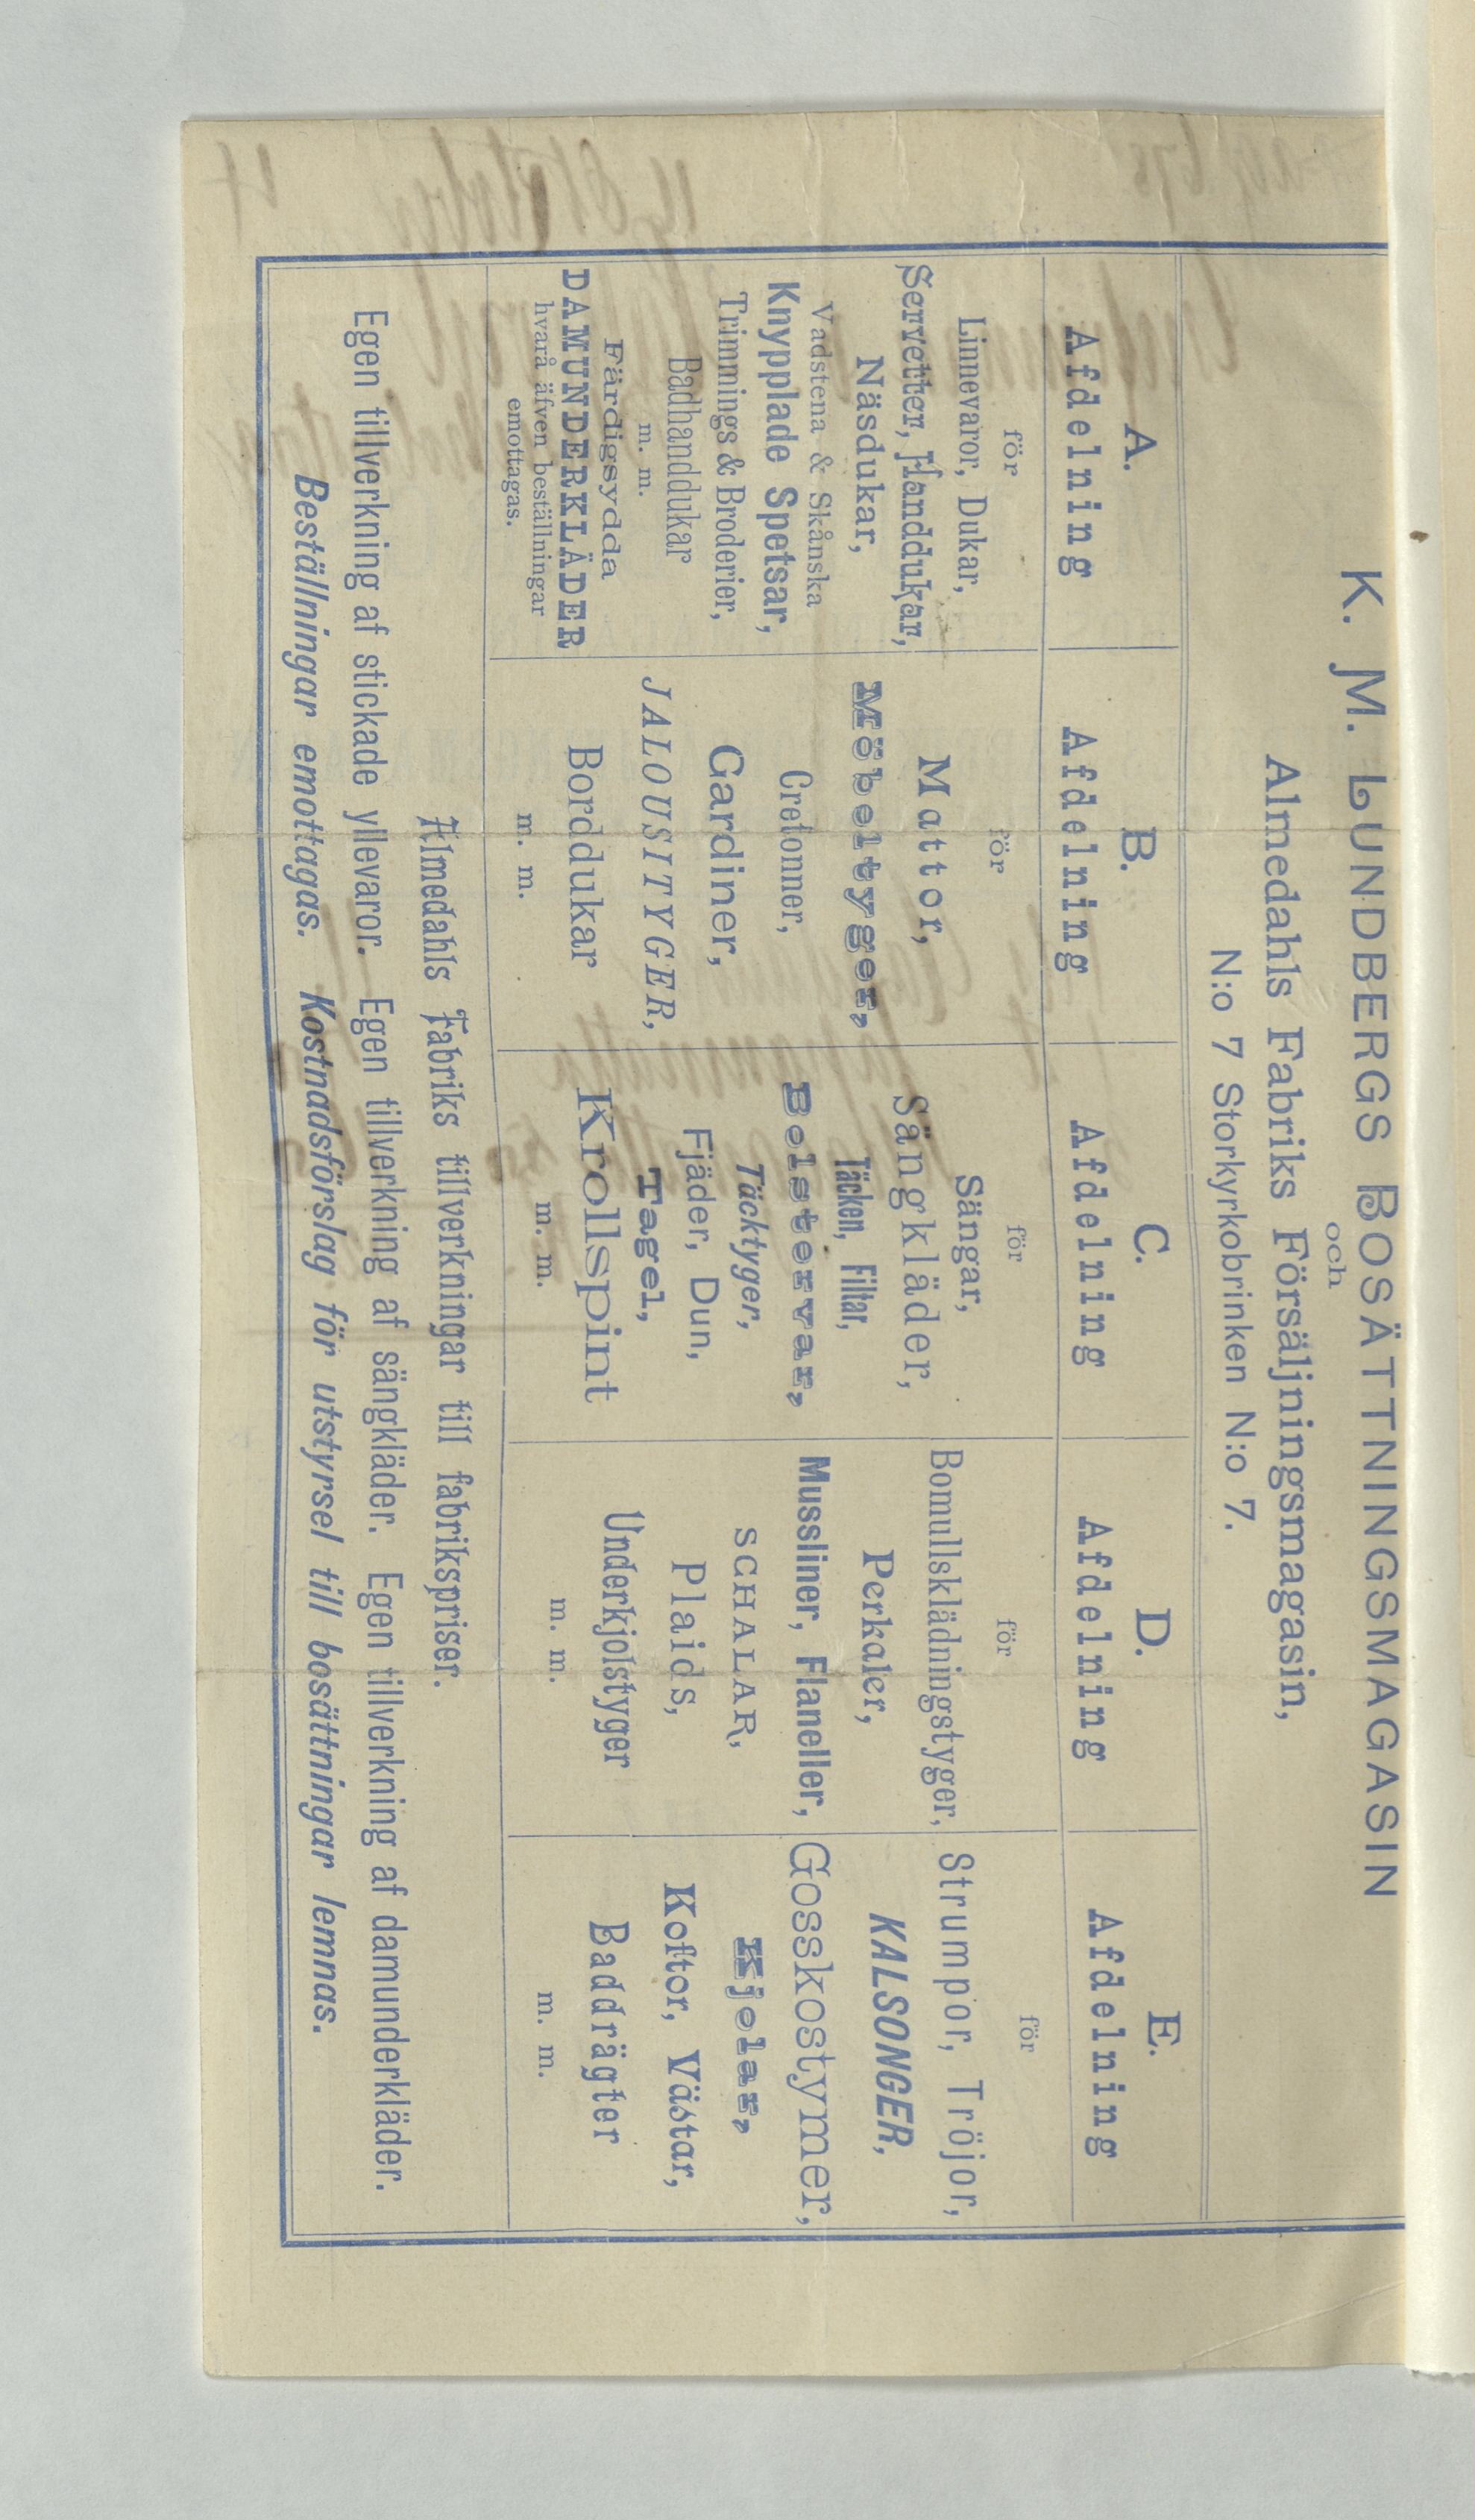 K. M. LUNDBERGS BOSÄTTNINGSMAGASIN
och
Almedahls Fabriks Försäljningsmagasin,
N:o 7 Storkyrkobrinken N:o 7.
A.
Afdelning
för
Linnevaror, Dukar,
Servetter, Handdukar,
Näsdukar,
Vadstena & Skånska
Knypplade Spetsar,
Trimmings & Broderier,
Badhanddukar
m. m.
Färdigsydda
DAMUNDERKLÄDER
hvarå äfven beställningar
emottagas.
B.
Afdelning
för
Mattor,
Möbeltyger,
Cretonner,
Gardiner,
JALOUSITYGER,
Borddukar
m. m.
C.
Afdelning
för
Sängar,
Sängkläder,
Täcken, Filtar,
Bolstervar,
Täcktyger,
Fjäder, Dun,
Tagel,
Krollspint
m. m.
D.
Afdelning
för
Bomullsklädningstyger,
Perkaler,
Mussliner, Flaneller,
SCHALAR,
Plaids,
Underkjolstyger
m. m.
E.
Afdelning
för
Strumpor, Tröjor,
KALSONGER,
Gosskostymer,
Kjolar,
Koftor, Västar,
Baddrägter
m. m.
Almedahls Fabriks tillverkningar till fabrikspriser.
Egen tillverkning af stickade yllevaror. Egen tillverkning af sängkläder. Egen tillverkning af damunderkläder.
Beställningar emottagas. Kostnadsförslag för utstyrsel till bosättningar lemnas.